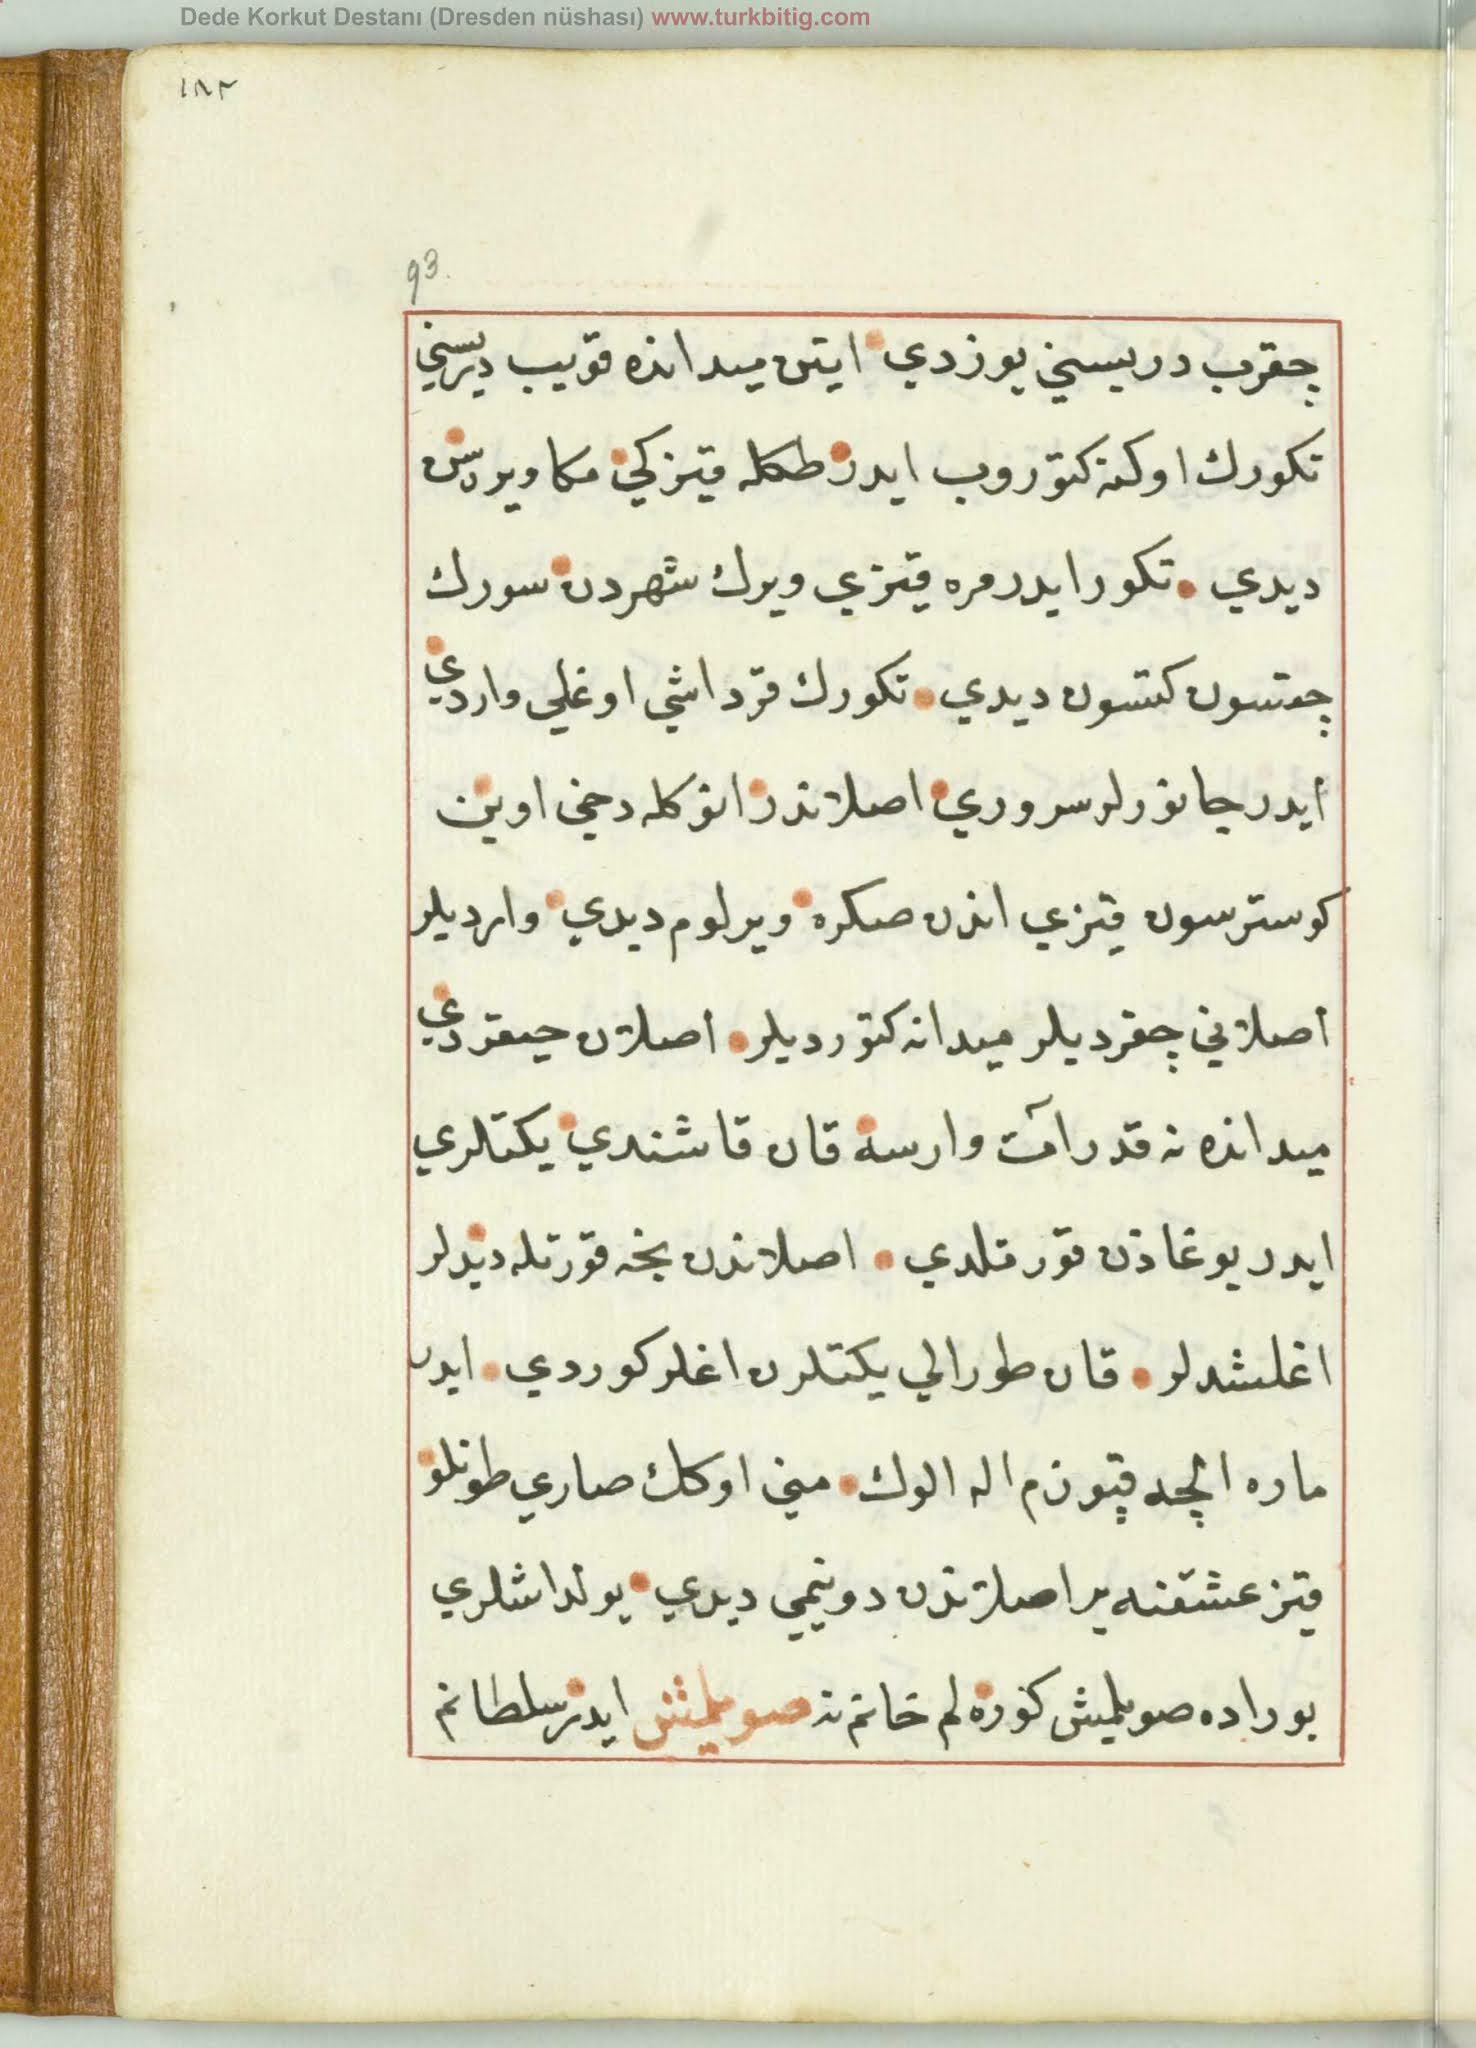 Dede Korkut Destanı (Dresden nüshası) www.turkbitig.com
١٨٢
93.
چقرب دريسني يوزدي ايتن ميدانده قويب دريسني
تكورك اوكنه كتوروب ايدر طكله قيزكي مكا ويرسن
ديدي تكور ايدر مره قيزي ويرك شهردن سورك
چقسون كتسون ديدي تكورك قرداشي اوغلي واردي
ايدر جانورلر سروري اصلاندر انوكله دخي اوين
كوسترسون قيزي اندن صكره ويرلوم ديدي وارديلر
اصلاني چقرديلر ميدانه كتورديلر اصلان حيقردي
ميدانده نه قدر آت وارسه قان قاشندي يكتلري
ايدر بوغادن قورتلدي اصلاندن نجه قورتله ديدلر
اغلشدلر قان طورالي يكتلرن اغلر كوردي ايدر
مره الچه قپوزم اله الوك مني اوكك صاري طونلو
قيز عشقنه بر اصلاندن دونيمي ديدي يولداشلري
بوراده صويلميش كوره لم خانم نه صويلمش ايدر سلطانم